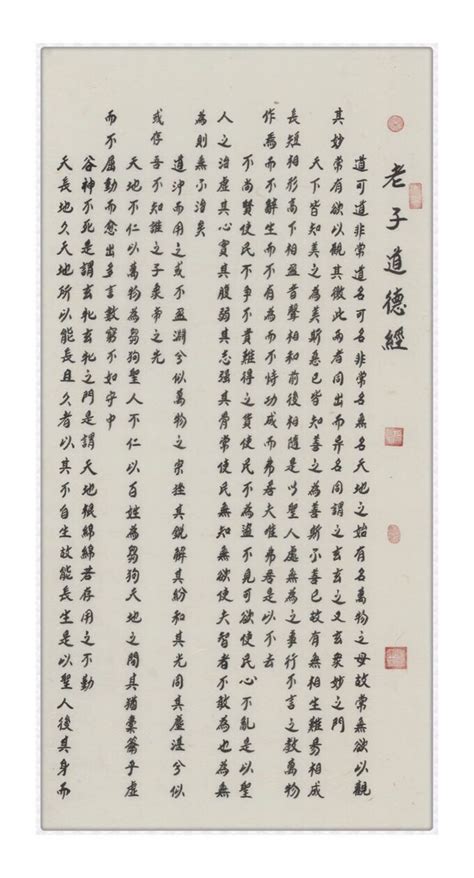 老子道德經
道可道非常道名可名非常名無名天地之始有名萬物之母故常無欲以觀
其妙常有欲以觀其徼此兩者同出而異名同謂之玄玄之又玄眾妙之門
天下皆知美之為美斯惡已皆知善之為善斯不善已故有無相生難易相成
長短相形高下相盈音聲相和前後相隨是以聖人處無為之事行不言之教萬物
作為而不解生而不有而不恃功成而弗居夫唯弗居是以不去
不尚賢使民不爭不貴難得之貨使民不為盜不見可欲使民心不亂是以聖
人之治虛其心實其腹弱其志強其骨常使民無知無欲使夫智者不敢為也為無
為則無不治矣
道沖而用之或不盈淵兮似萬物之宗挫其銳解其紛和其光同其塵湛兮似
或存吾不知誰之子象帝之先
天地不仁以萬物為芻狗聖人不仁以百姓為芻狗天地之間其猶橐籥乎虛
而不屈動而愈出多言數窮不如守中
谷神不死是謂玄牝玄牝之門是謂天地根綿綿若存用之不勤
天長地久天地所以能長且久者以其不自生故能長生是以聖人後其身而